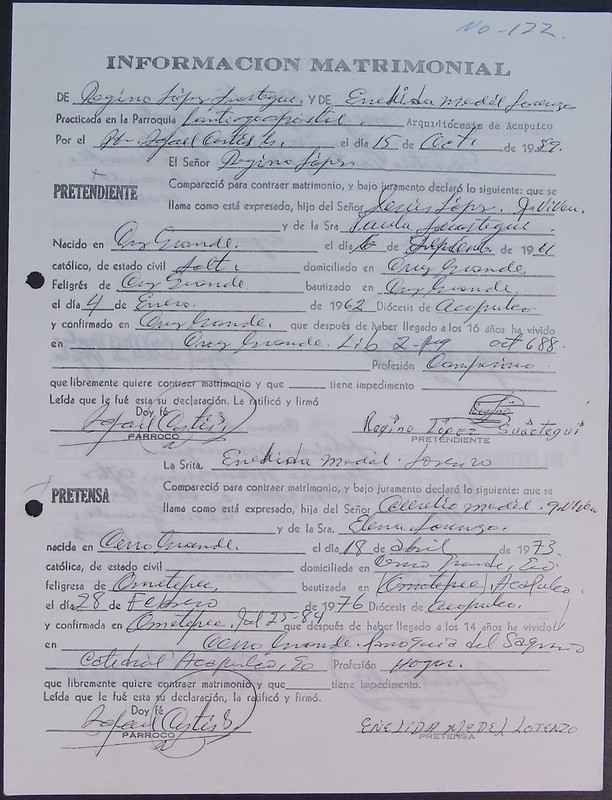 No-122.
INFORMACION MATRIMONIAL
DE Regino López Suastegui, Y DE Enedida Medel Lorenzo
Practicada en la Parroquia Santiago apóstol. Arquidiócesis de Acapulco
Por el Pbr. Rafael Cortés el día 15 de Oct. de 1989.
El Señor Regino López
PRETENDIENTE
Compareció para contraer matrimonio, y bajo juramento declaró lo siguiente: que se
llama como está expresado, hijo del Señor Jesús López
y de la Sra Paula Suastegui.
Nacido en Cruz Grande. el día 6 de Septiembre de 19
católico, de estado civil domiciliado en Cruz Grande.
Feligrés de Cruz Grande bautizado en Cruz Grande.
el día 4 de Enero. de 1962 Diócesis de Acapulco
y confirmado en Cruz Grande. que después de haber llegado a los 16 años ha vivido
en Cruz Grande. Lib 2- 688.
Profesión Campesino
que libremente quiere contraer matrimonio y que tiene impedimento
Leída que le fué esta su declaración. La ratificó y firmó
Doy fé
Rafael Cortés
PARROCO
Regino López Suástegui
PRETENDIENTE
La Srita. Enedida Medel. Lorenzo
PRETENSA
Compareció para contraer matrimonio, y bajo juramento declaró lo siguiente: que se
llama como está expresado, hija del Señor Medel.
y de la Sra. Elena Lorenzo.
nacida en Cerro Grande. el día 18 de abril de 1973.
católica, de estado civil domiciliada en Cerro Grande,
feligresa de Ometepec, bautizada en (Ometepec) Acapulco.
el día 28 de Febrero de 1976 Diócesis de Acapulco.
y confirmada en Ometepec, Jul 25-84 que después de haber llegado a los 14 años ha vivido
en Cerro Grande. Parroquia del Sagrario
Catedral Acapulco, Gro Profesión Hogar.
que libremente quiere contraer matrimonio y que tiene impedimento.
Leída que le fué esta su declaración, la ratificó y firmó.
Doy fé
Rafael Cortés
PARROCO
ENELIDA MEDEL LORENZO
PRETENSA